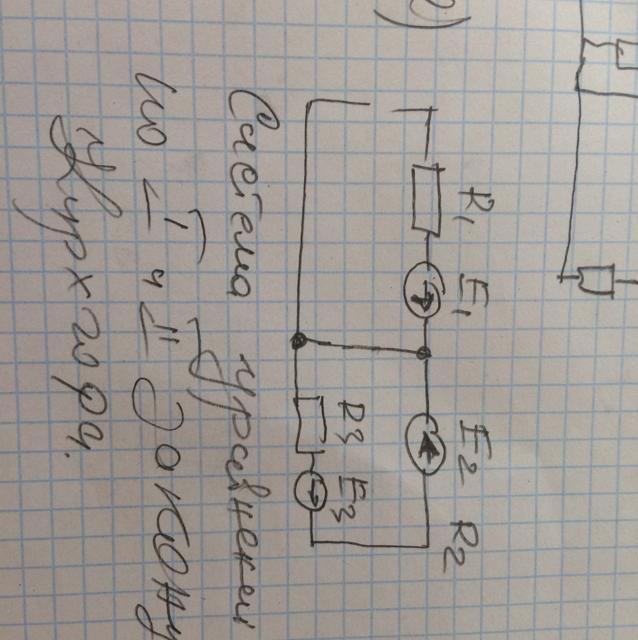 R1 E1 E2 R2
R3 E3
Система уравнени
по I и II закону
Кирхгофа.